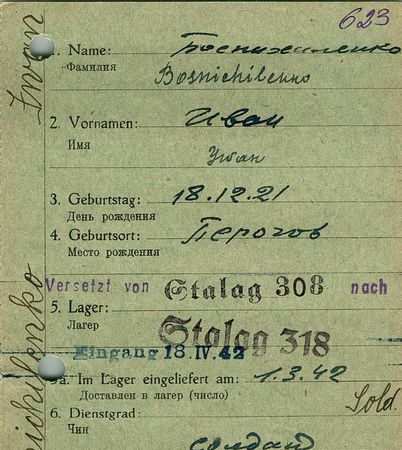 623
1. Name: Боснихиленко
Фамилия Bosnichilenko
2. Vornamen: Иван
Имя Iwan
3. Geburtstag: 18.12.21
День рождения
4. Geburtsort: Перогов
Место рождения
Versetzt von Stalag 308 nach
5. Lager:
Лагер Stalag 318
Eingang 18. IV. 42
5a. Im Lager eingeliefert am: 1.3.42
Доставлен в лагер (число)
6. Dienstgrad: Sold.
Чин солдат
Iwan